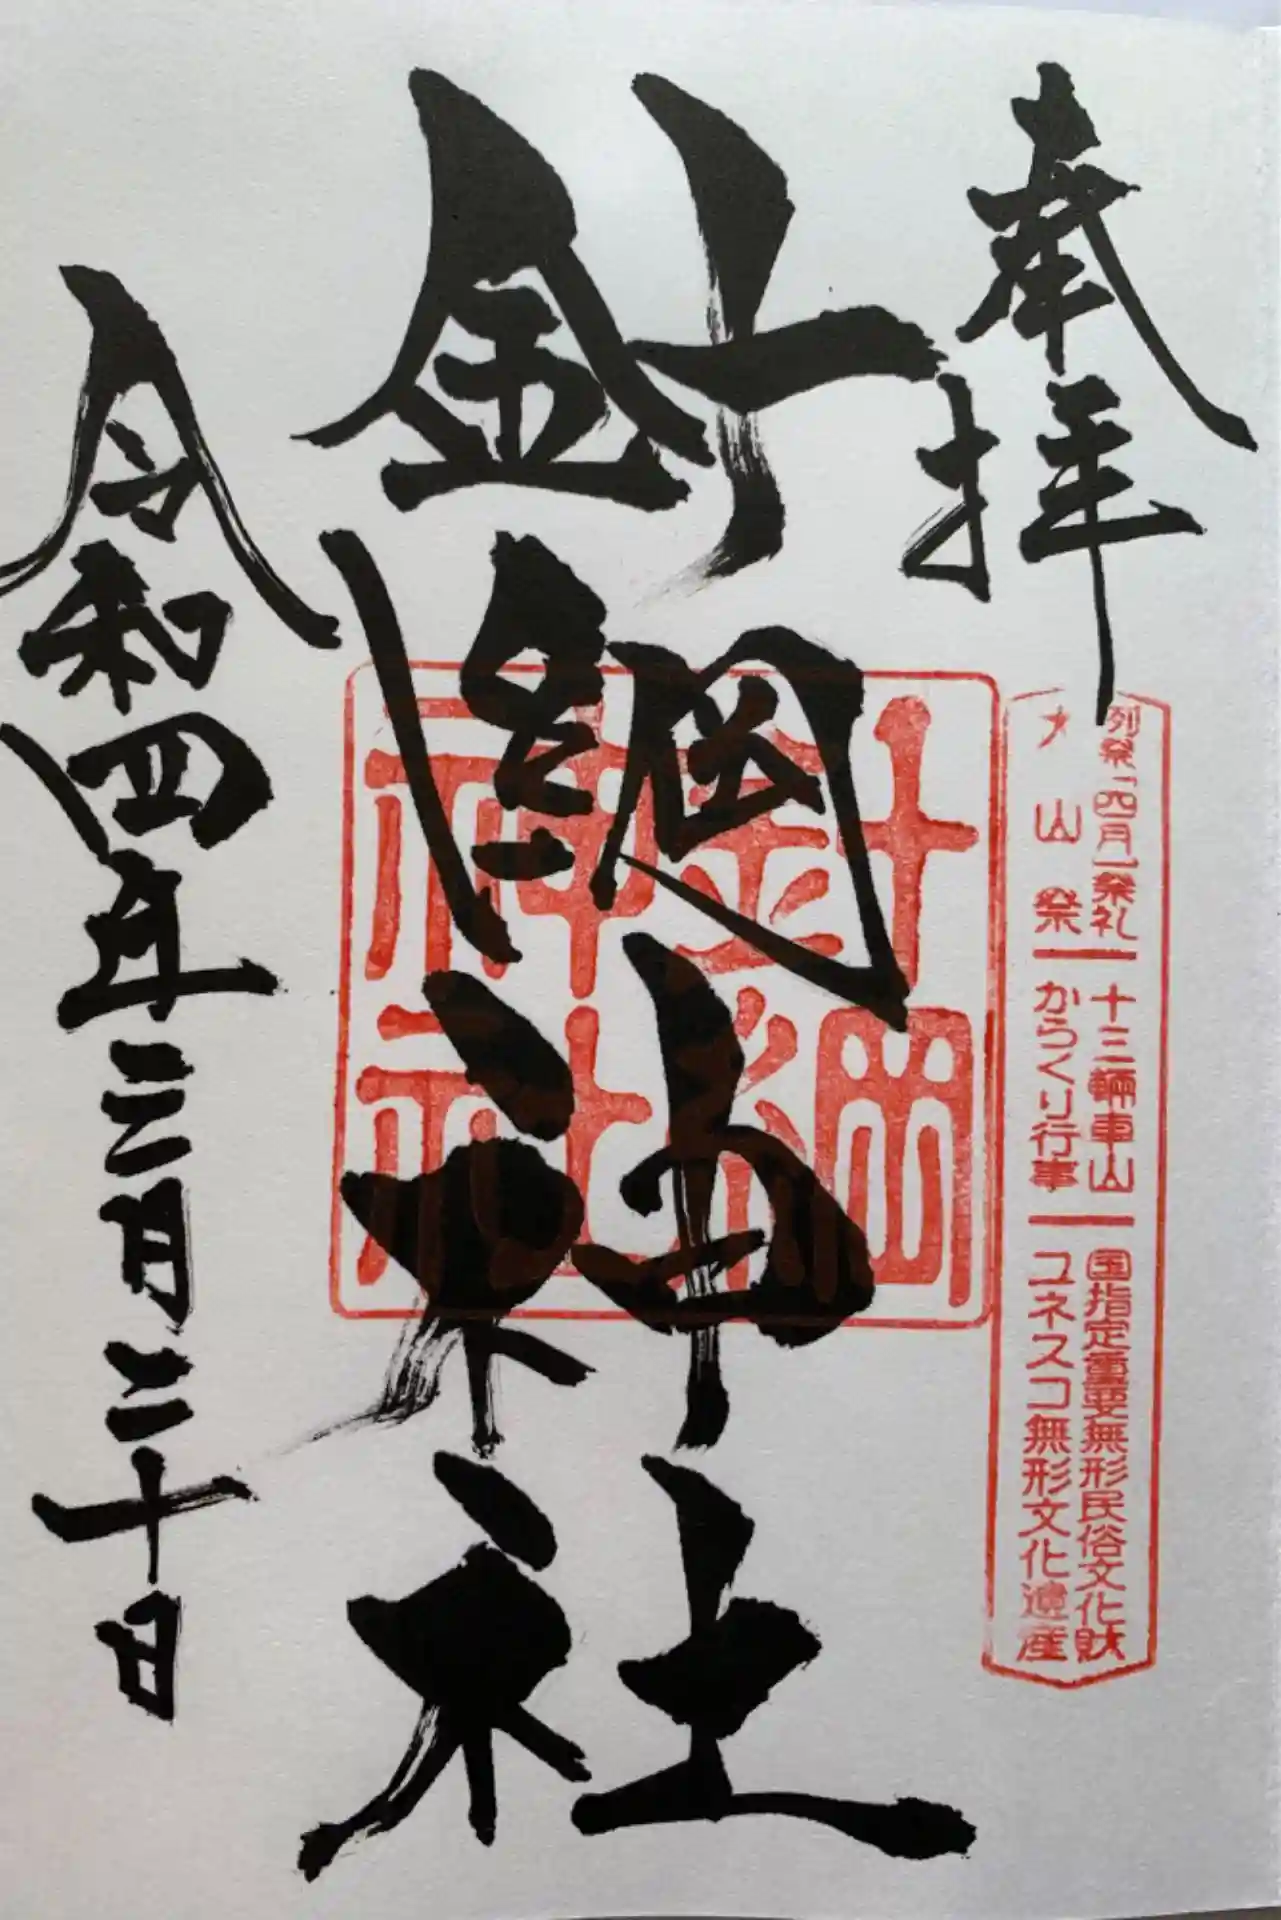 奉拝
列祭「四月」祭礼 十三輛車山 国指定重要無形民俗文化財
犬山祭 からくり行事 ユネスコ無形文化遺産
針綱神社
針綱
神社
令和四年三月二十日